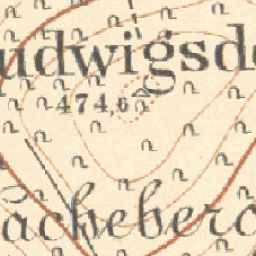 udwigsdo
474,6
acheberg